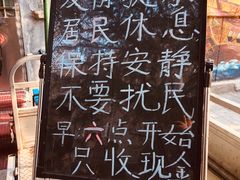 居民休息
保持安静
不要扰民
早六点开始
只收现金